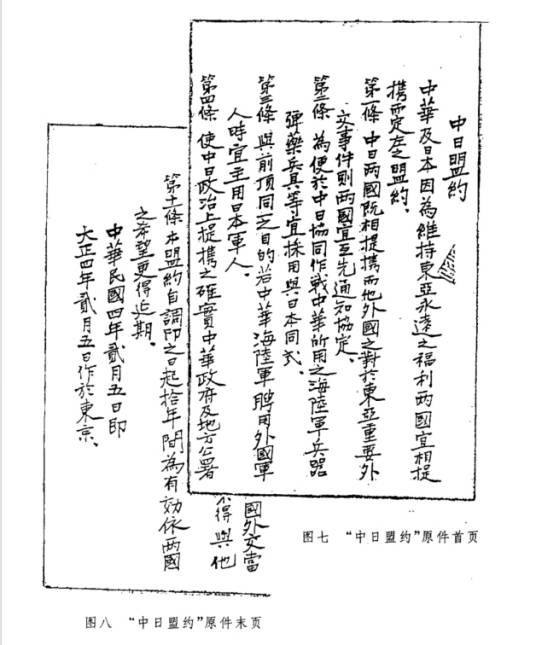 中日盟約
中華及日本因為維持東亞永遠之福利兩國宜相提
携而定左之盟約、
第一條 中日兩國既相提携而他外國之對於東亞重要外
交事件則兩國宜互先通知協定、
第二條 為便於中日協同作戰中華所用之海陸軍兵器
彈藥兵具等宜採用與日本同式、
第三條 與前項同之目的若中華海陸軍聘用外國軍
人時宜主用日本軍人。
第四條 使中日政治上提携之確實中華政府及地方公署
图七 “中日盟约”原件首页
國外交當
不得與他
第十一條 本盟約自調印之日起拾年間為有効依兩國
之希望更得延期。
中華民國四年貳月五日即
大正四年貳月五日作於東京、
图八 “中日盟约”原件末页